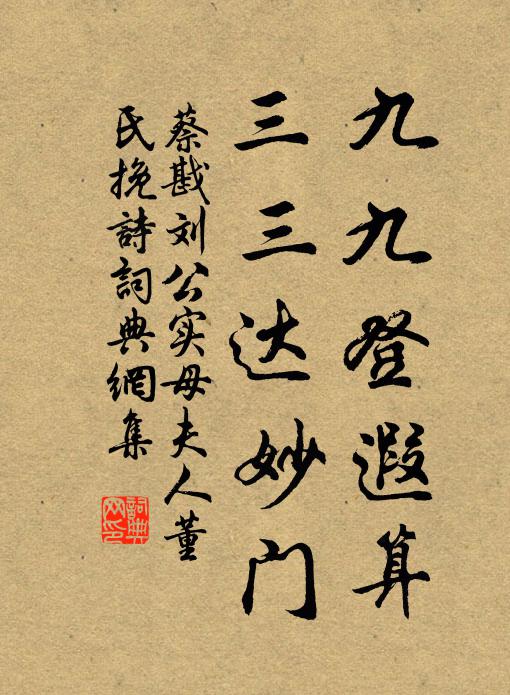 九九登遐算
三三达妙门
蔡戡刘公实母夫人董
氏挽诗詞典網集
詞典网印